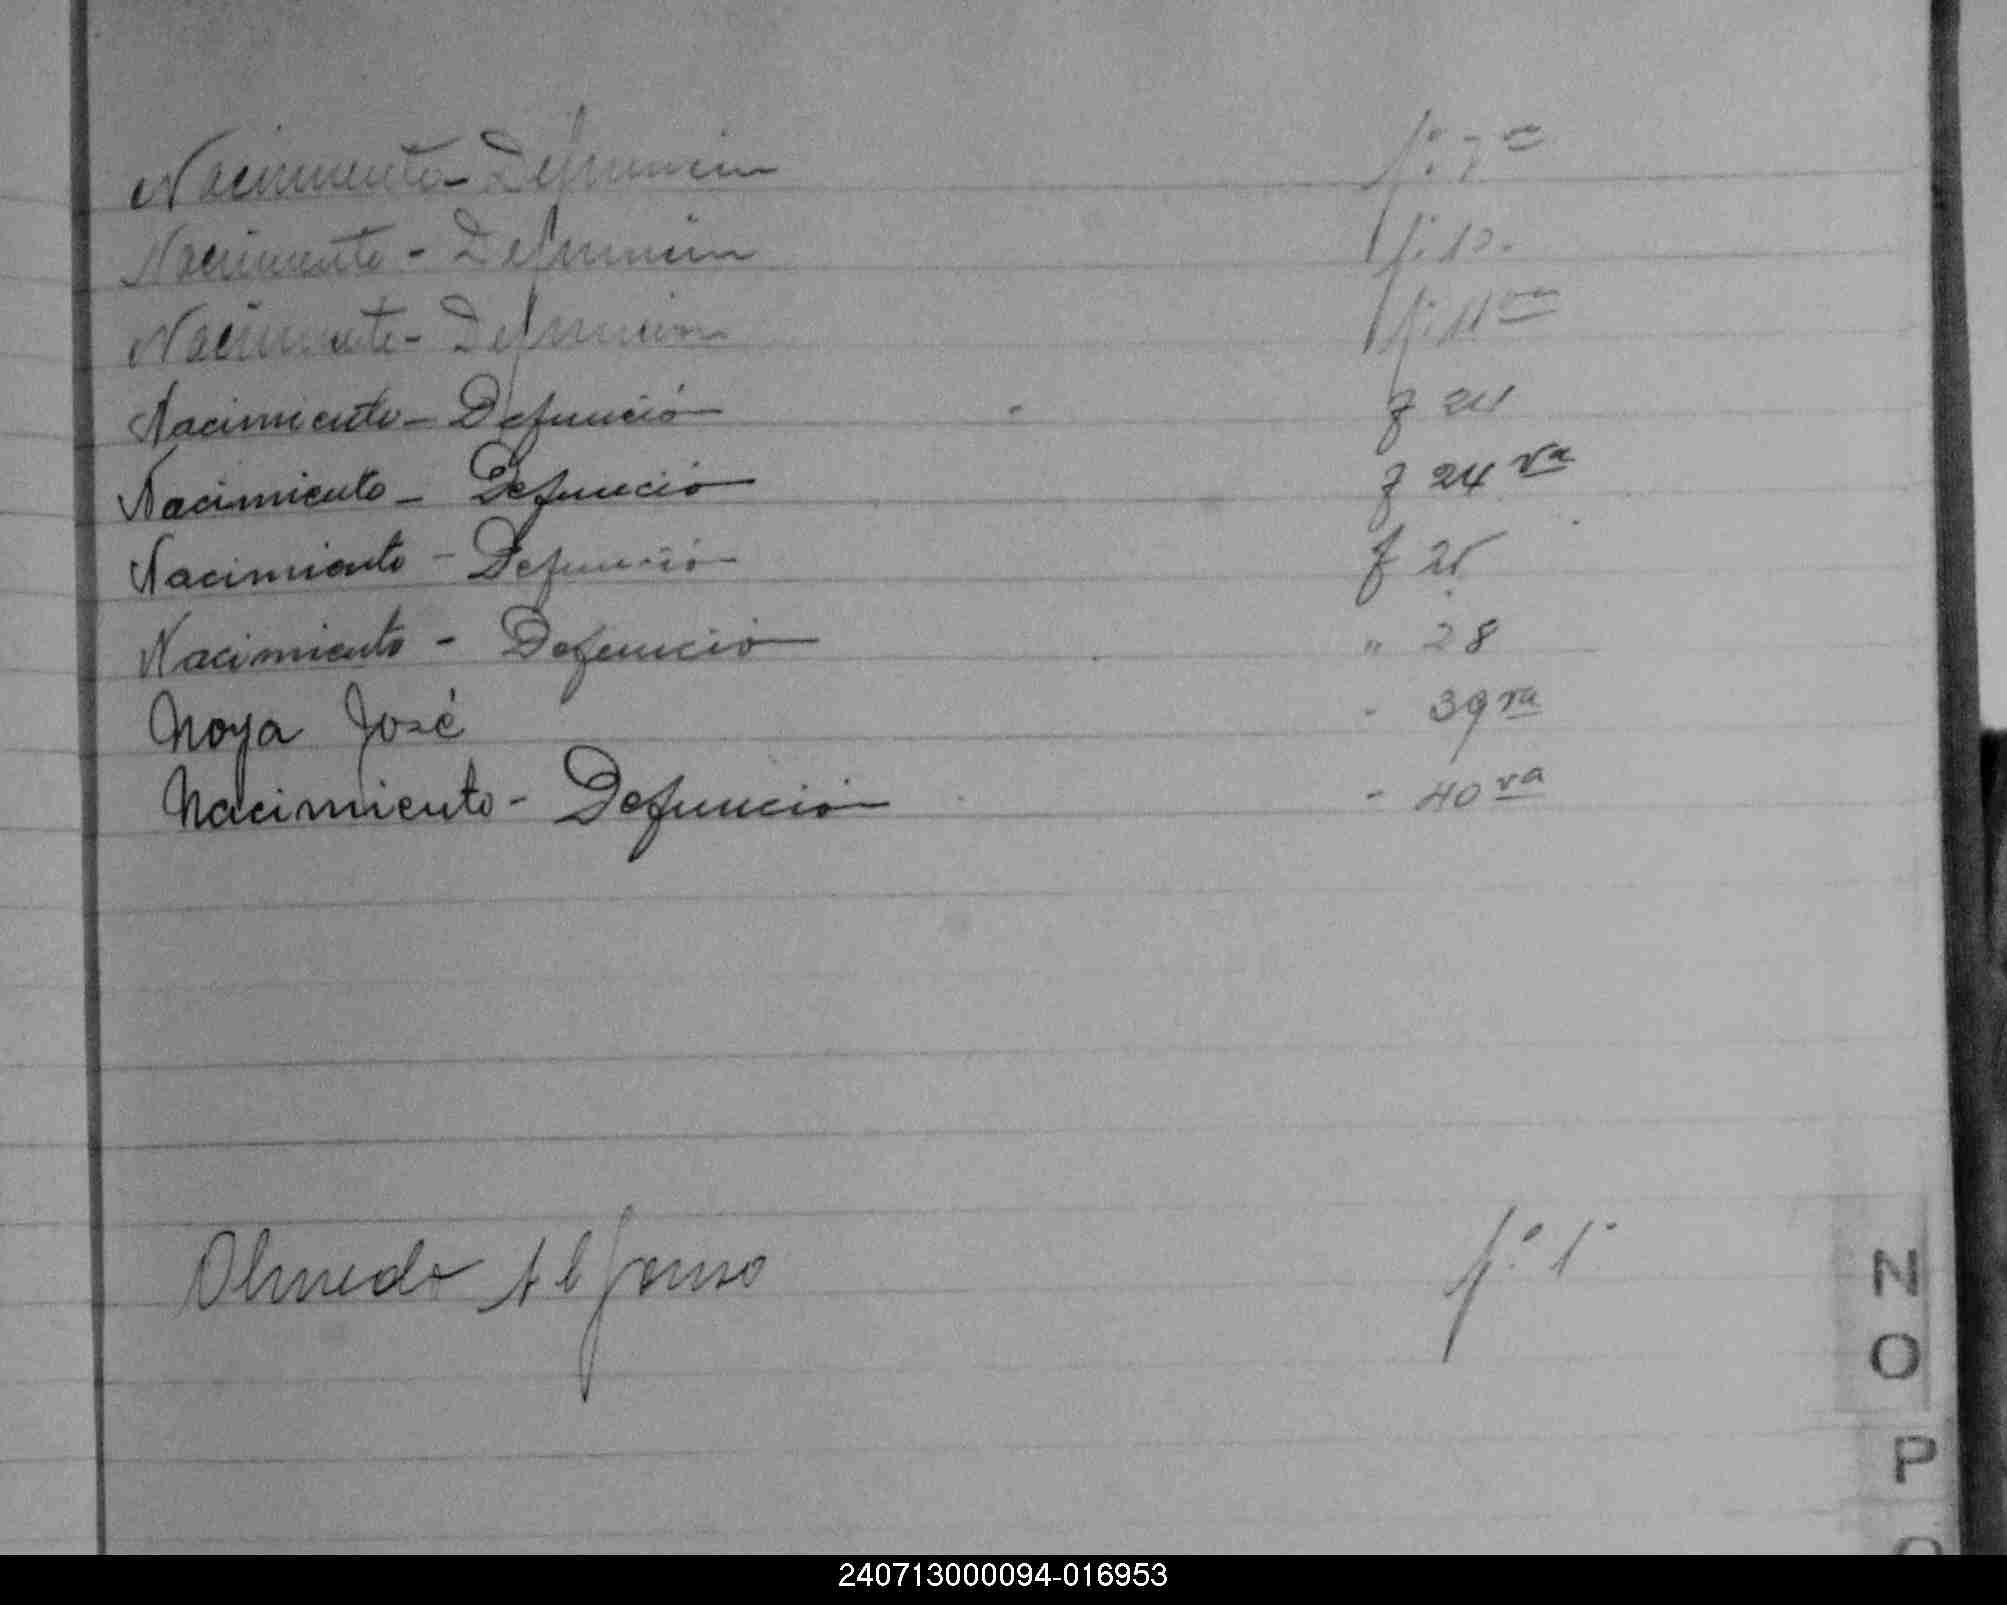 Nacimiento - Defunción fº. 7 va
Nacimiento - Defunción fº. 10.
Nacimiento - Defunción fº. 11 va
Nacimiento - Defunción f 24
Nacimiento - Defunción f 24 va
Nacimiento - Defunción f 25
Nacimiento - Defunción " 28
Noya José - 39 va
Nacimiento - Defunción - 40 va
Olmedo Alfonso fº. 1
N
O
P
240713000094-016953